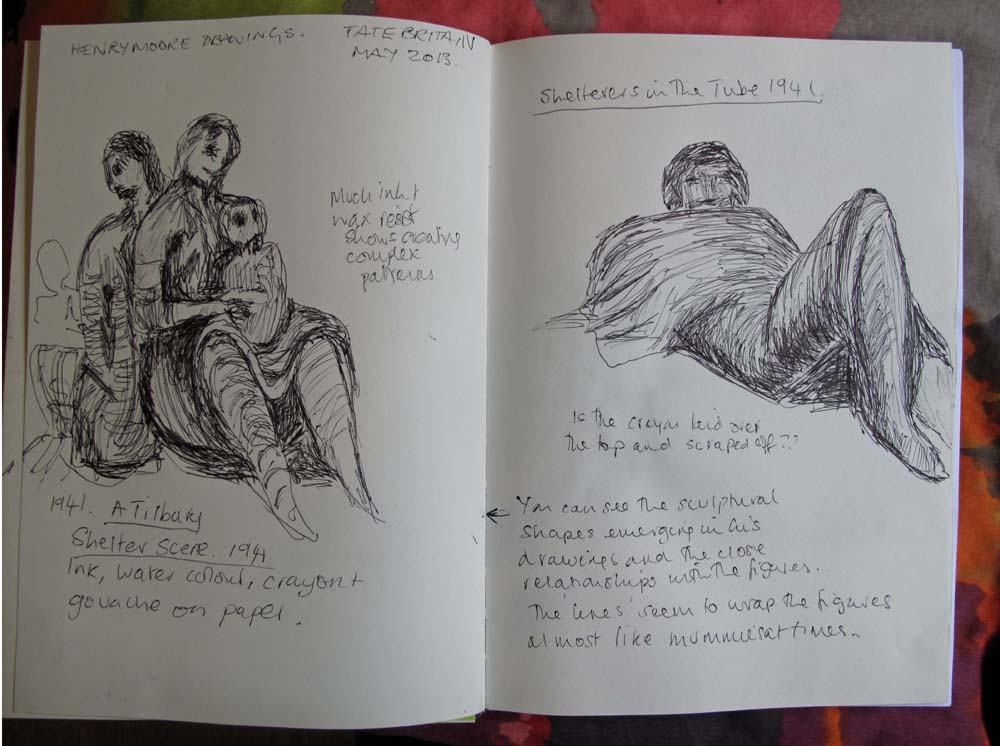 HENRY MOORE DRAWINGS. TATE BRITAIN
MAY 2013.
Much ink +
wax resist
shows creating
complex
patterns
1941. A Tilbury
Shelter Scene. 1941
Ink, water colour, crayon +
gouache on paper.
Shelterers in The Tube 1941.
Is the crayon laid over
the top and scraped off??
You can see the sculptural
shapes emerging in his
drawings and the close
relationships with the figures..
The 'lines' seem to wrap the figures
almost like mummies at times.